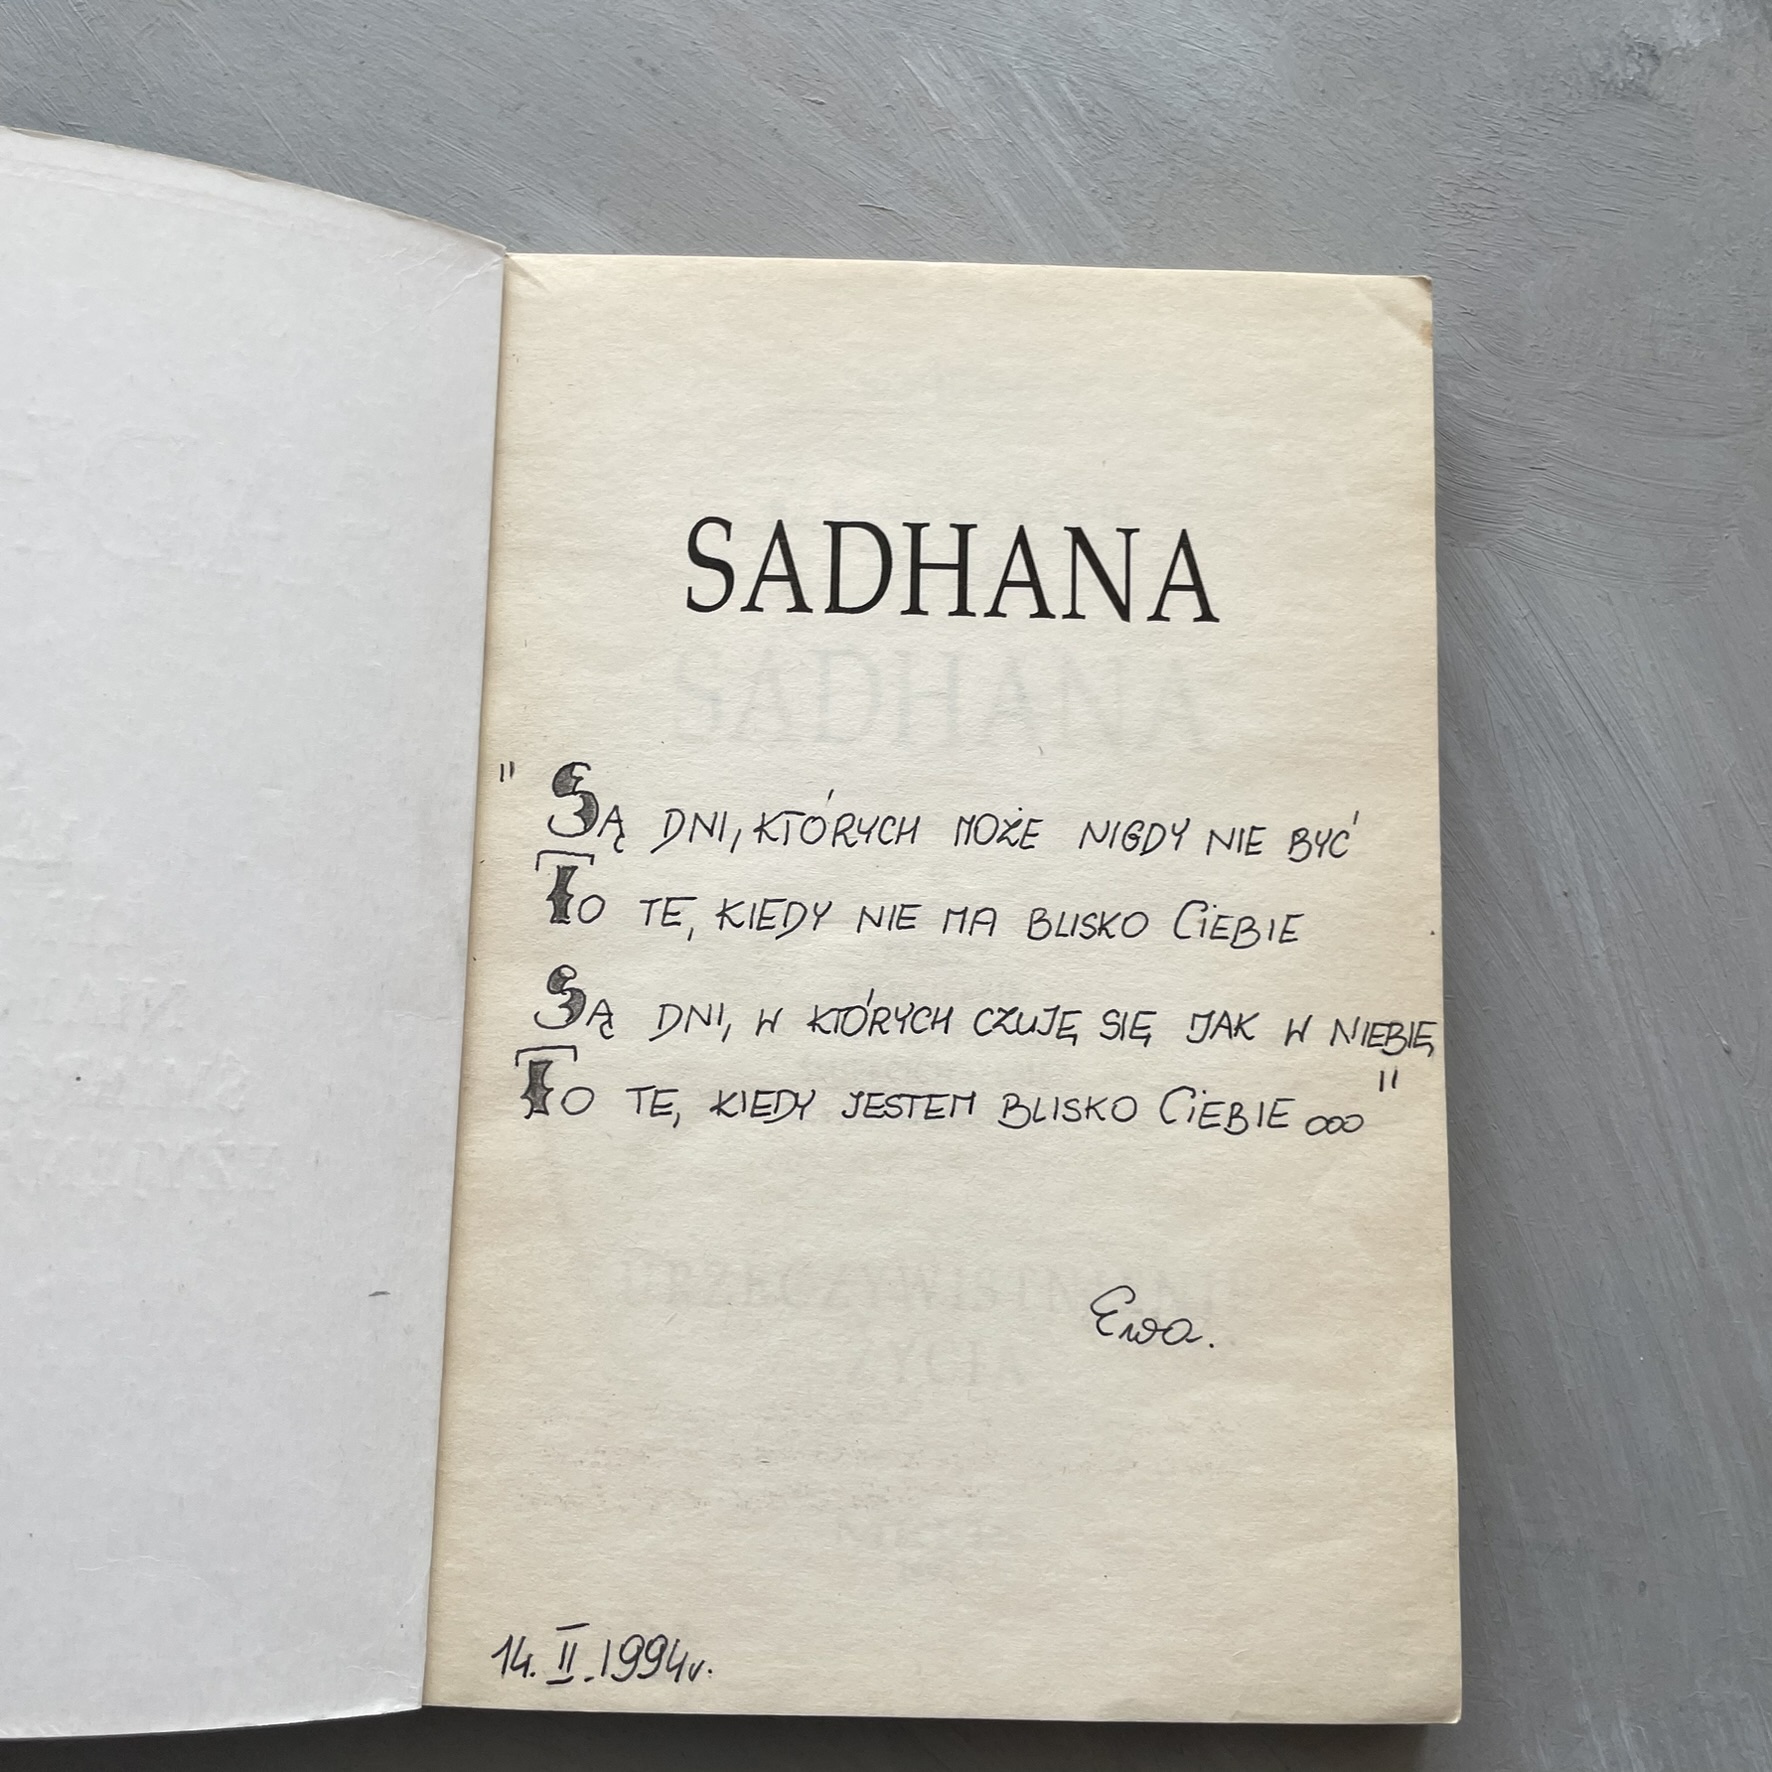 SADHANA
" SĄ DNI, KTÓRYCH MOŻE NIGDY NIE BYĆ
TO TE, KIEDY NIE MA BLISKO CIEBIE
SĄ DNI, W KTÓRYCH CZUJĘ SIĘ JAK W NIEBIE,
TO TE, KIEDY JESTEM BLISKO CIEBIE..."
Ewa.
14. II. 1994r.